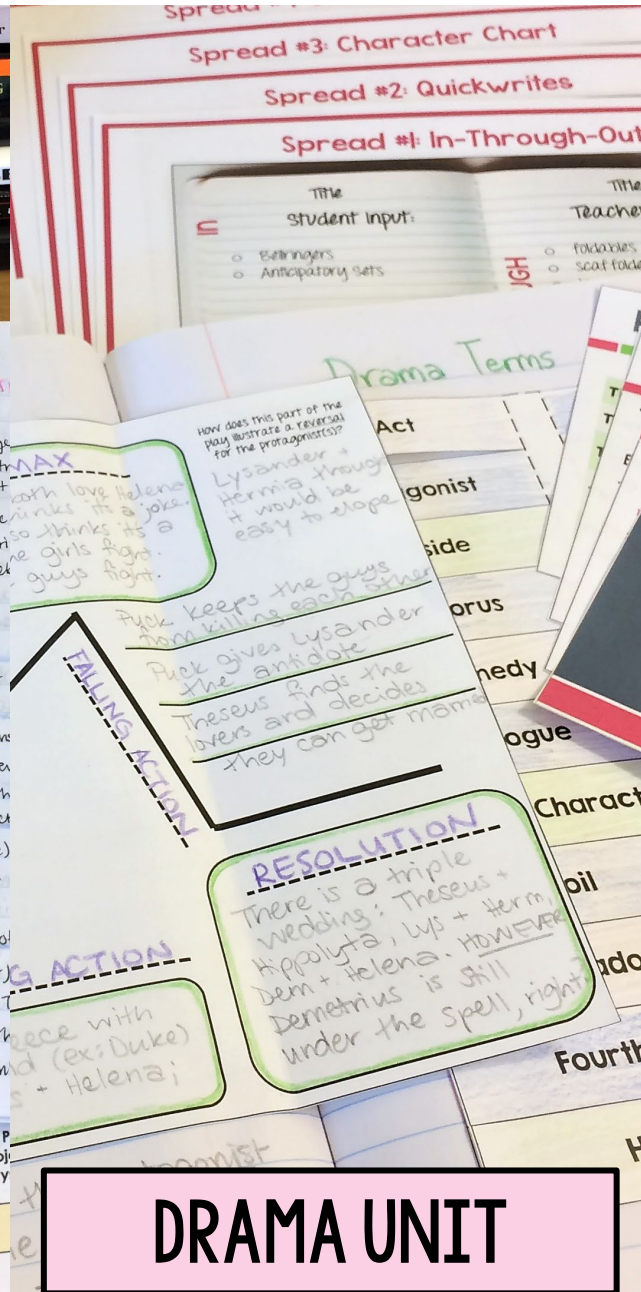 Spread
Spread #3: Character Chart
Spread #2: Quickwrites
Spread #1: In-Through-Out
Title
Student Input:
IN
Bellringers
Anticipatory Sets
Title
Teache
UGH
foldables
scaffold
Drama Terms
Act
gonist
side
orus
medy
ogue
Charact
oil
Fourth
H
MAX
both love Helena
thinks it's a joke.
so thinks it's a
he girls fight.
guys fight.
How does this part of the
play illustrate a reversal
for the protagonist(s)?
Lysander +
Hermia though
it would be
easy to elope
Puck keeps the guys
from killing each other
Puck gives Lysander
the antidote
Theseus finds the
lovers and decides
they can get married
FALLING ACTION
RESOLUTION
There is a triple
wedding: Theseus +
Hippolyta, Lys + Herm,
Dem + Helena. HOWEVER
Demetrius is still
under the spell, right
G ACTION
eece with
(ex: Duke)
s + Helena;
DRAMA UNIT